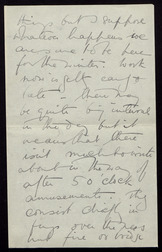 things but I suppose
whatever happens we
are to be here
for the winter. Work
now is not
late – there may
be quite big interval
in the day but it
means that there
isn't much to write
about in the way of
after 5 o'clock
amusements. They
consist chiefly in
over the
and fire or bridge